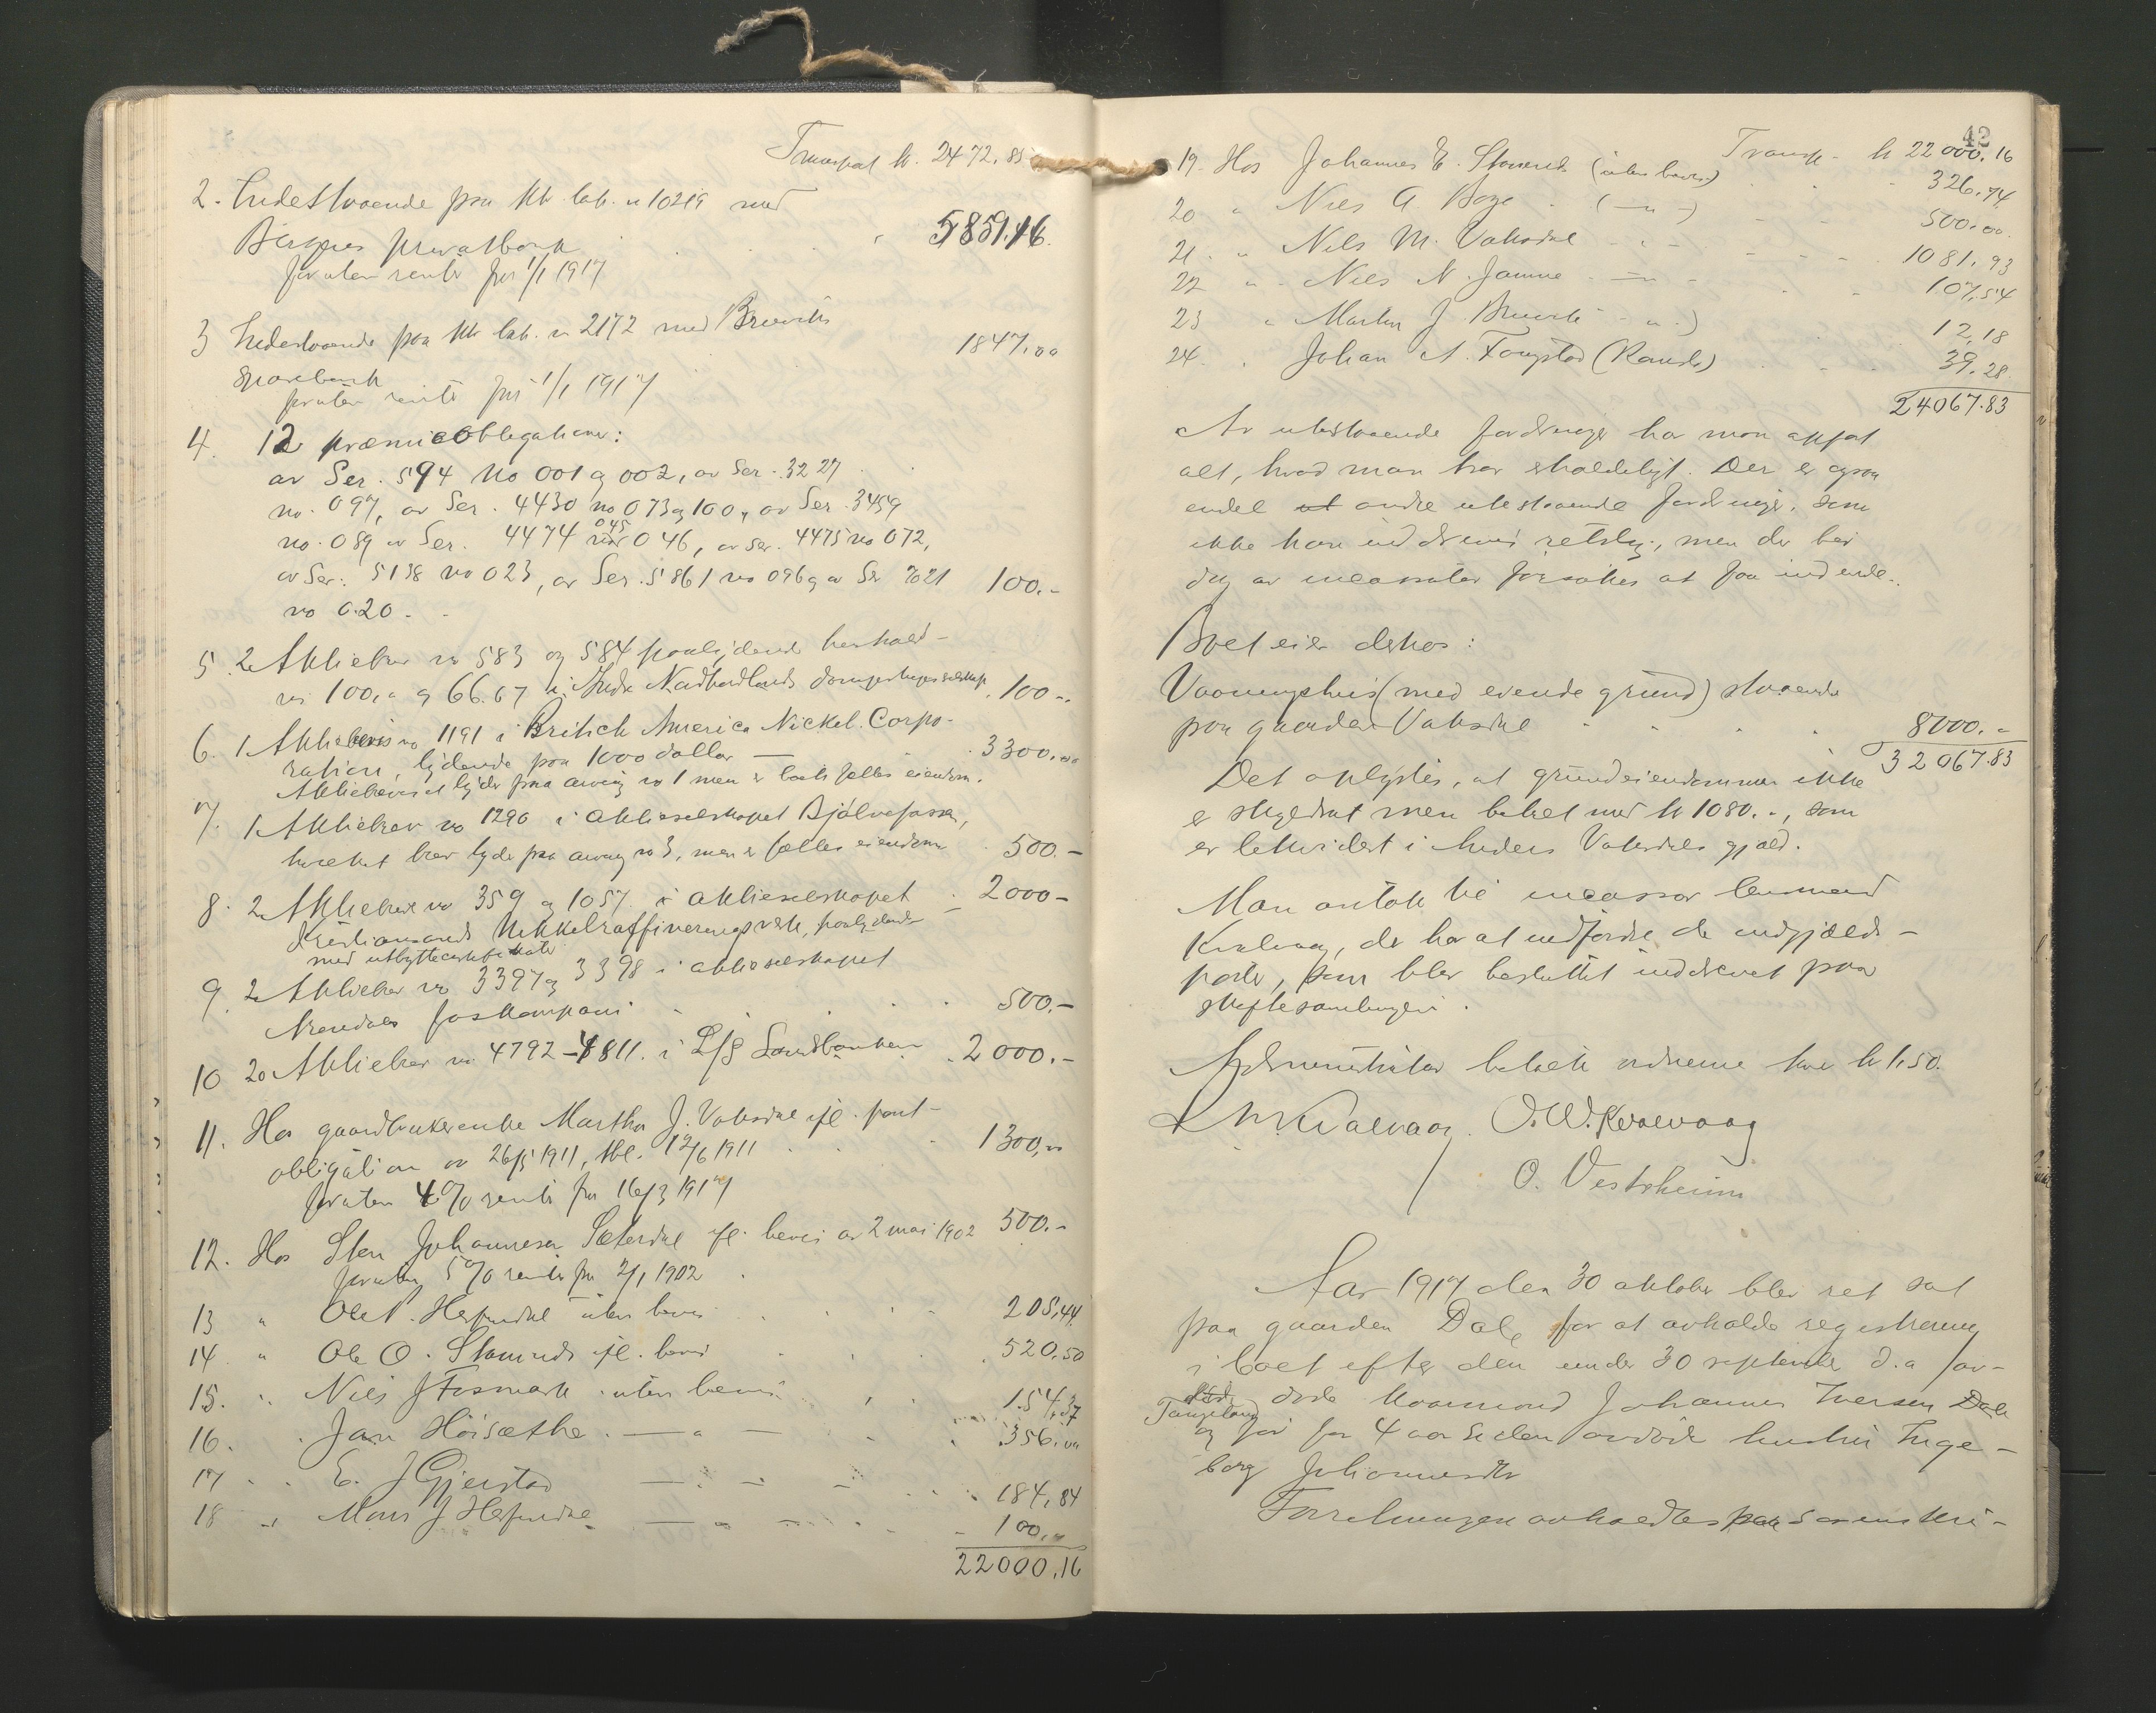 Transport kr. 2472.85
2. Indestaaende paa ktr lab. n 10219 med
Bergens privatbank 5859.16
foruten rente fra 1/1 1917
3 Indestaaende paa ktr lab. n 2172 med Bruviks
sparebank 1847,00
foruten rente fra 1/1 1917
4. 12 præmieobligationer:
av Ser. 594 No 001 og 002, av Ser. 3227
no. 097, av Ser. 4430 no 073 og 100, av Ser. 3459
no. 089 av Ser. 4474 no 045 046, av Ser. 4475 no 072,
av Ser. 5138 no 023, av Ser. 5861 no 096 og av Ser 7021 100.-
no 020.
5. 2 Aktiebrev no 583 og 584 paalydende henhold-
vis 100,- og 66.67 i Indre Nordhordlands dampskipsselskap. 100-.
6. 1 Aktiebevis no 1191 i British America Nickel. Corpo-
ration, lydende paa 1000 dollar 3300.00
Aktiebeviset lyder paa arving no 1 men er boets fælles eiendom.
7. 1 Aktiebrev no 1290 i aktieselskapet Bjølvefossen,
hvilket brev lyder paa arving no 3, men er fælles eiendom 500.-
8. 2 Aktiebrev no 359 og 1057 i aktieselskapet 2000-
Kristiansands Nikkelraffineringsverk, paalydende
med utbyttecertifikater
9. 2 Aktiebrev no 3397 og 3398 i aktieselskapet
Arendals foskompani 500.-
10 20 Aktiebrev no 4792-4811. i A/S Landbanken 2000.-
11. Hos gaardbrukerenke Martha J. Vaksdal ifl. pant-
obligation av 26/5 1911, tbl. 12/6 1911 1300,00
foruten 4% rente fra 16/3 1917
12. Hos Sten Johannesen Sæterdal ifl. bevis av 2 mai 1902 500.-
foruten 5% rente fra 2/1 1902
13 " Ole N. Hesjedal uten bevis 205,44
14 " Ole O. Stamnes ifl. bevis 520,50
15. " Nils J Fosmark uten bevis 154,37
16. " Jan Höisæthe - " - 356.00
17 " E. J Gjerstad - " - 184,84
18 " Mons J Hesjedal - " - 100,00
22000.16
42
Transp. kr 22000.16
19. Hos Johannes E. Stamnes (uten bevis) 326.74
20 " Nils A. Boge (-"-) 500.00
21. " Nils M. Vaksdal - " - 1081,93
22 " Nils N. Jamne - " - 107,54
23 " Martin J. Bruvik - " -) 12,18
24. " Johan A. Fougstad (Rands) 39.28
24067.83
Av utestaaende fordringer har man opført
alt, hvad man har erholdeligt. Der er ogsaa
endel ut andre utestaaende fordringer, som
ikke kan inddrives retslig, men der bør
dog av incassator forsøkes at faa ind endel.
Boet eier derhos:
Vaaningshus (med eiende grund) staaende
paa gaarden Vaksdal 8000.-
32067.83
Det oplystes, at grundeiendommen ikke
er skyldsat men betalt med kr 1080.-, som
er likvidert i Anders Vaksdals gjæld.
Man antok til incassator lensmand
Kvalvaag, der har at indfordre de indgjælds-
poster, som blev besluttet inddrevet paa
skiftesamlingen.
Administrator betalte vidnerne hver kr 1,50.
M. Kvalvaag. O.W. Kvalvaag
O. Vestrheim
Aar 1917 den 30 oktober blev ret sat
paa gaarden Dale for at avholde registrering
i boet efter den under 30 september d.a av-
døde kaarmand Johannes Iversen Dale
Tangeland
og for for 4 aar siden avdøde hustru Inge-
borg Johannesdtr
Forretningen avholdtes paa sorenskri-